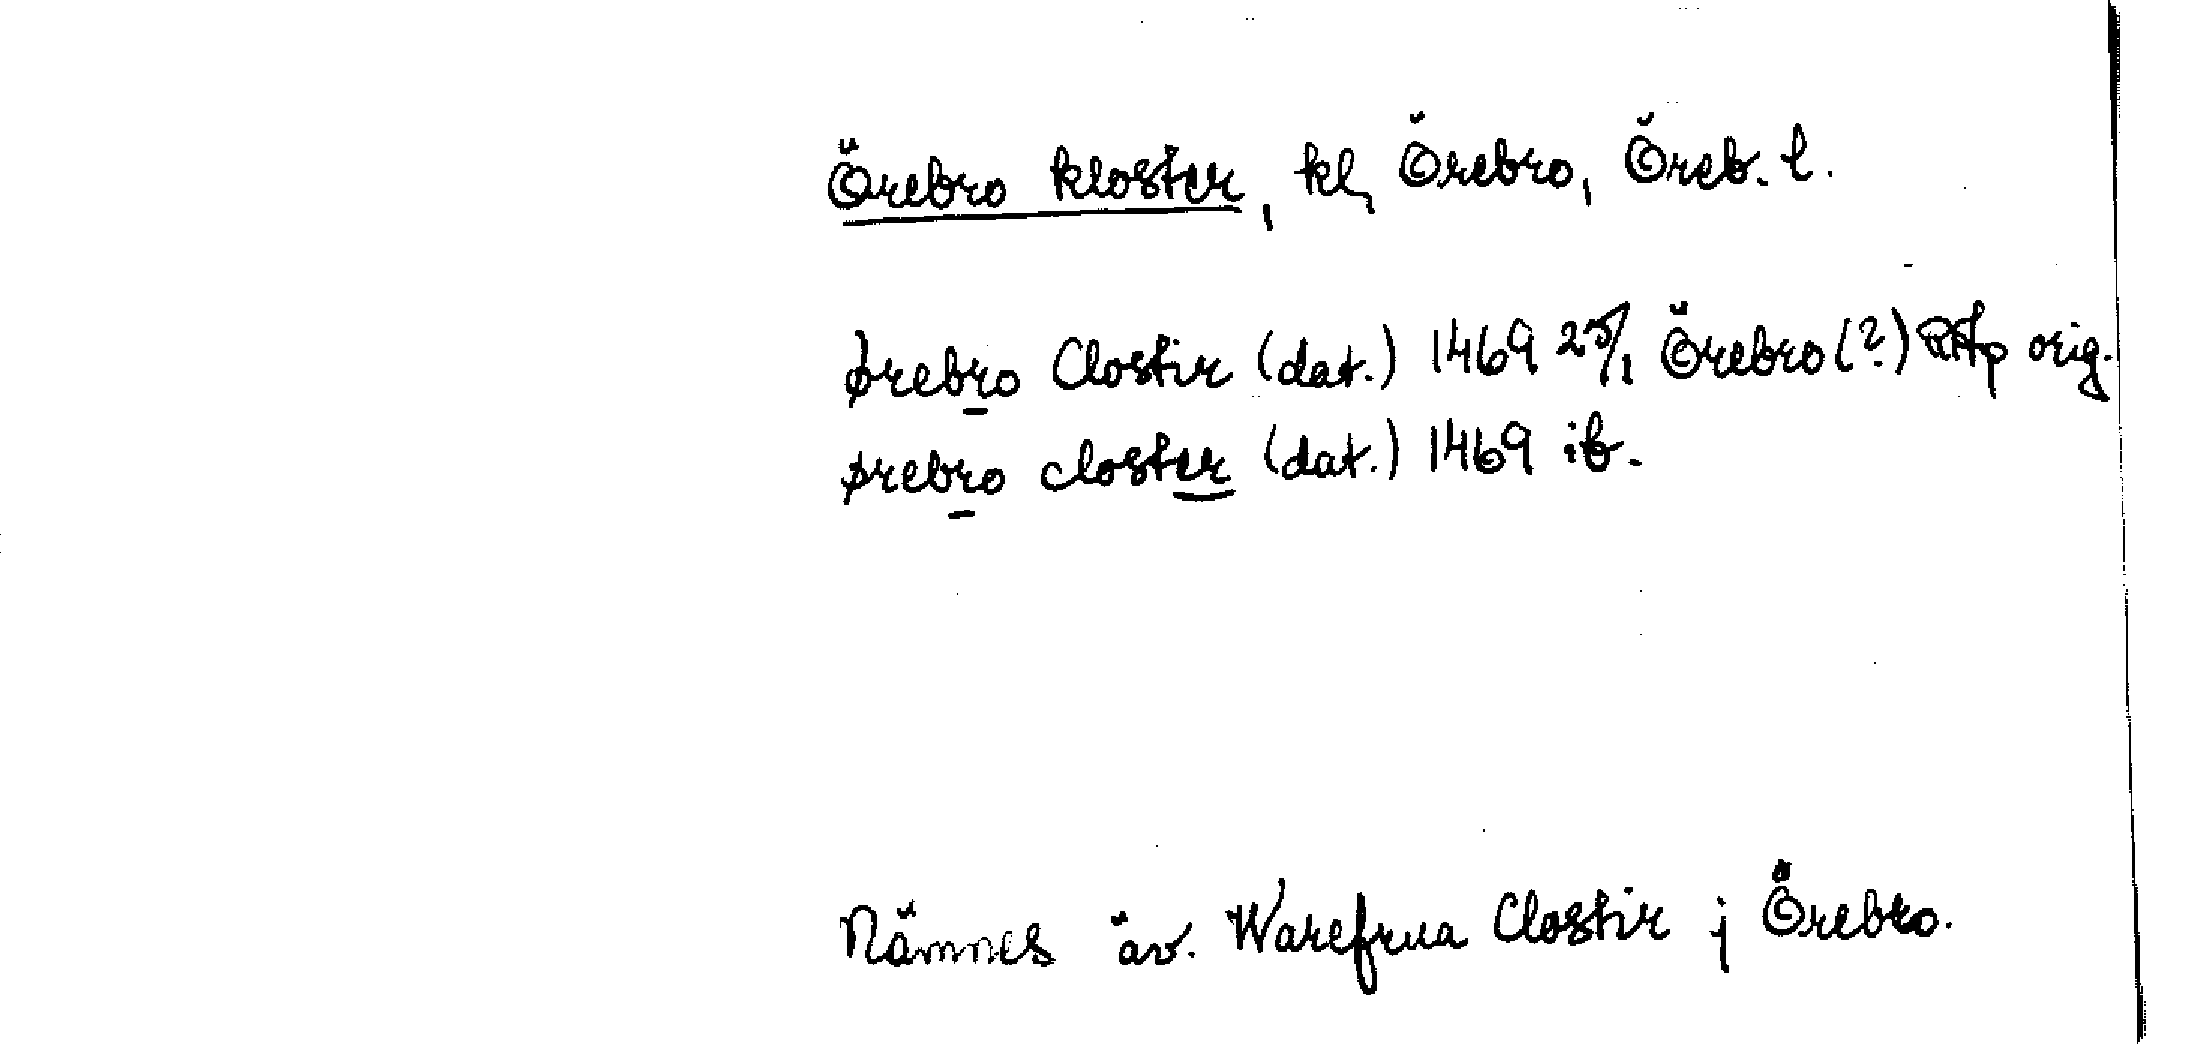 Örebro kloster, kl, Örebro, Öreb. l.
ørebro Clostir (dat.) 1469 25/1 Örebro (?) RAp orig.
ørebro closter (dat.) 1469 ib.
Nämnes äv. Warefrua Clostir j Örebro.